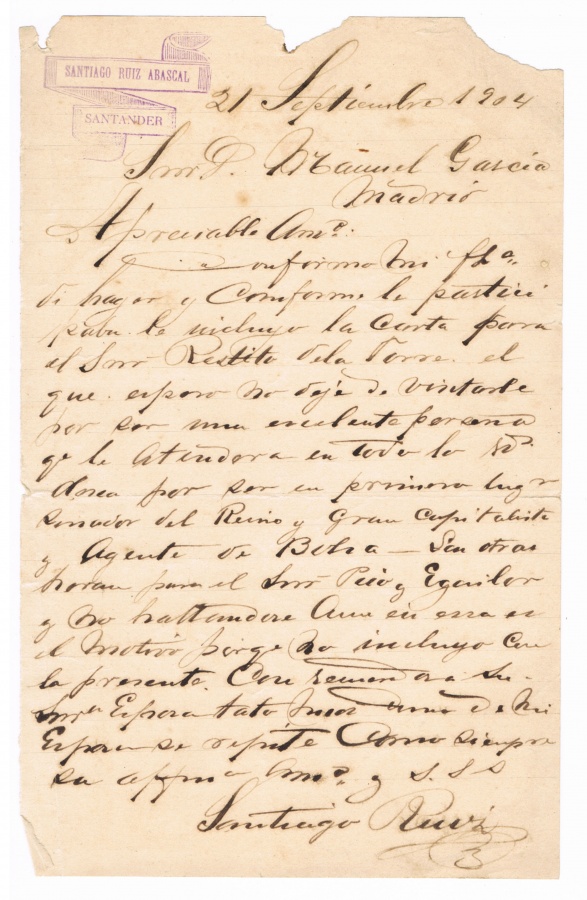 SANTIAGO RUIZ ABASCAL
SANTANDER
21 Septiembre 1904
Snr. D. Manuel Garcia
Madrid
Apreciable Amº:
Conforme mi
de hayer y Comforme le partici
paba le incluyo la Carta para
el Snr Restito dela Torre. el
que espero no deje de visitarle
por ser una excelente persona
qe le Atendera en todo lo qe Vd
desea por ser en primero lugr
senador del Reino y Gran Capitalista
y Agente de Bolsa — Las otras
heran para el Snr Pico y Eguilor
y no hallandose Aun en essa es
el Motivo porqe no incluyo Con
la presente. Con recuerdos a Su
Snra Esposa tato mios Como de Mi
Esposa se repite Como siempre
su affmo Amº y S. S.
Santiago Ruiz